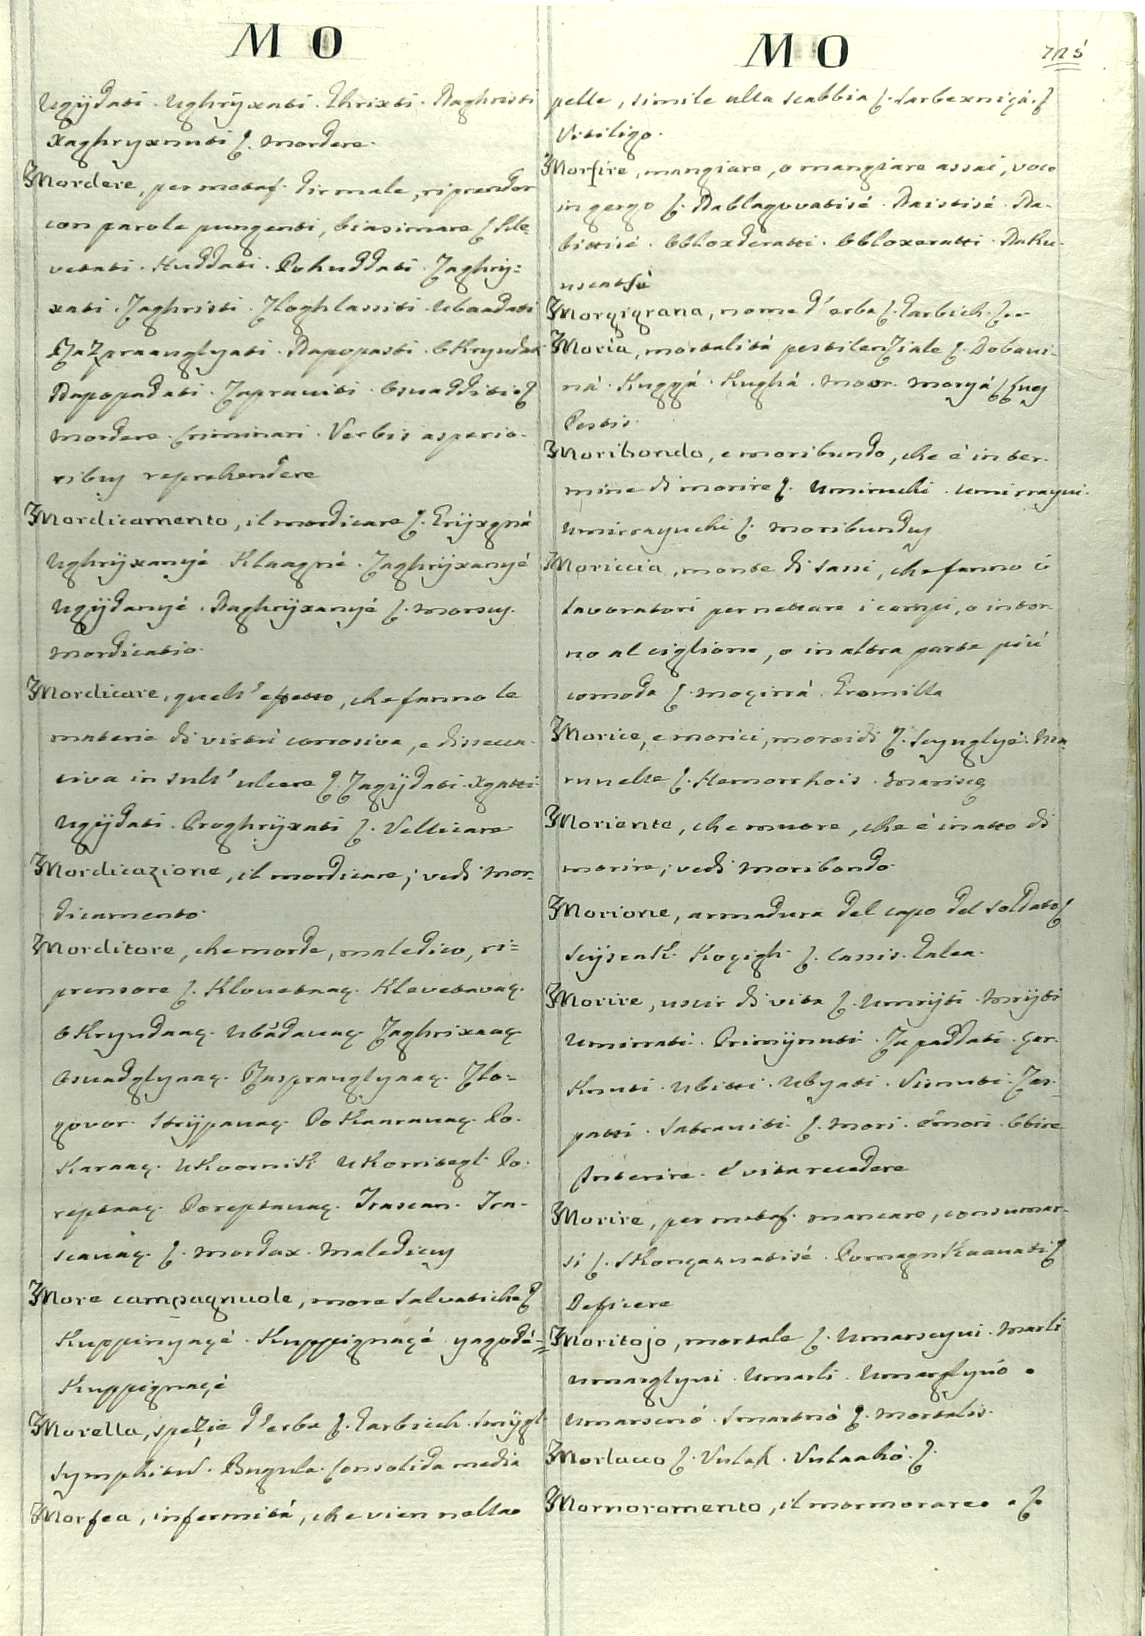 M O
Ugÿdati. Ughrÿxati. Uhrixti. Naghristi
xaghryxnuti ʃ. mordere.
Mordere, per metaf. dir male, riprender
con parole pungenti, biasimare ʃ Kle-
vetati. Huddati. Pohuddati. Zaghry=
xati. Zaghristi. Zloghlassiti. Ubaadati
Razpraanglyati. Napopasti.
Napopadati. Zapraviti. Osvadditi ʃ
mordere. Criminari. Verbis asperio-
ribus reprehendere
Mordicamento, il mordicare ʃ. Grÿxgnà
Ughrÿxanyé Klaagné. Zaghrÿxanyé
Ugÿdanyé. Naghrÿxanyé ʃ. morsus.
mordicatio.
Mordicare, quell' effetto, che fanno le
materie di virtù corrosiva, e dissecca-
tiva in sull' ulcere ʃ. Zagÿdati. Xgatti
Ugÿdati. Proghrÿxati ʃ. Vellicare
Mordicazione, il mordicare; vedi mor-
dicamento.
Morditore, che morde, maledico, ri=
prensore ʃ. Klovetaaç. Klevetavaç.
Okryvdaaç. Ubàdavaç Zaghrixaaç
Osvadglyaaç. Razprauglyaaç. Zlo=
govor. Htrÿpavaç. Pokaaravaç. Po-
karaaç. Ukoornik Ukorritegl. Po-
reptaaç. Poreptavaç. Trascan. Tra-
scavàç. ʃ. mordax. maledicus
More campagnuole, more salvatiche ʃ
Kuppinyaçé. Kuppignaçé yagodé=
Kuppignaçé
Morella, spezie d'erba ʃ. Tarbich. Smÿgl.
Symphitus. Bugula. Consolida media
Morfea, infermità, che vien nella
M O
725
pelle, simile alla scabbia ʃ. Sarbexniçá. ʃ
Vitiligo.
Morfire, mangiare, o mangiare assai, voce
in gergo ʃ. Nablaguvatisé. Naistisé. Na-
bittisé. Obloxderatti. Obloxeratti. Naku-
Morgigrana, nome d'erba ʃ. Tarbich. ʃ
Moria, mortalità pestilenziale ʃ. Dobavi-
nà. Kuggá. Kughá. Moor. moryá ʃ Lues
Pestis.
Moribondo, e moribundo, che è in ter-
mine di morire ʃ. Umiruchi. umirrayui.
Umirrayuchi ʃ. moribundus
Moriccia, monte di sassi, che fanno i
lavoratori per nettare i campi, o intor-
no al ciglione, o in altra parte più
comoda ʃ. moçirrá. Gromilla
Morice, e morici, moroidi ʃ. Scyuglyé. Ma-
runelle ʃ. Hemorrhois. marisce
Moriente, che muore, che è in atto di
morire; vedi moribondo.
Morione, armadura del capo del soldato ʃ
Scÿscak. Koçigh. ʃ. Cassis. Galea.
Morire, uscir di vita ʃ. Umrÿti. Mrÿti
Umirrati. Primÿnuti. Zapaddati. Çar-
knuti. Ubitti. Ubyati. Sisnuti. Zes-
patti. Satraviti. ʃ. mori. Emori. Obire
Interire. è vita recedere
Morire, per metaf. mancare, consumar-
si ʃ. Skonçavatisé. Pomagnkaavati ʃ
Deficere
Moritojo, mortale ʃ. Umarscyui. Marli
umarglyui. Umarli. Umarglyuó
umarscnó. Smartnó ʃ. mortalis.
Morlacco ʃ. Vulah. Vulaahó. ʃ.
Mormoramento, il mormorare. ʃ.